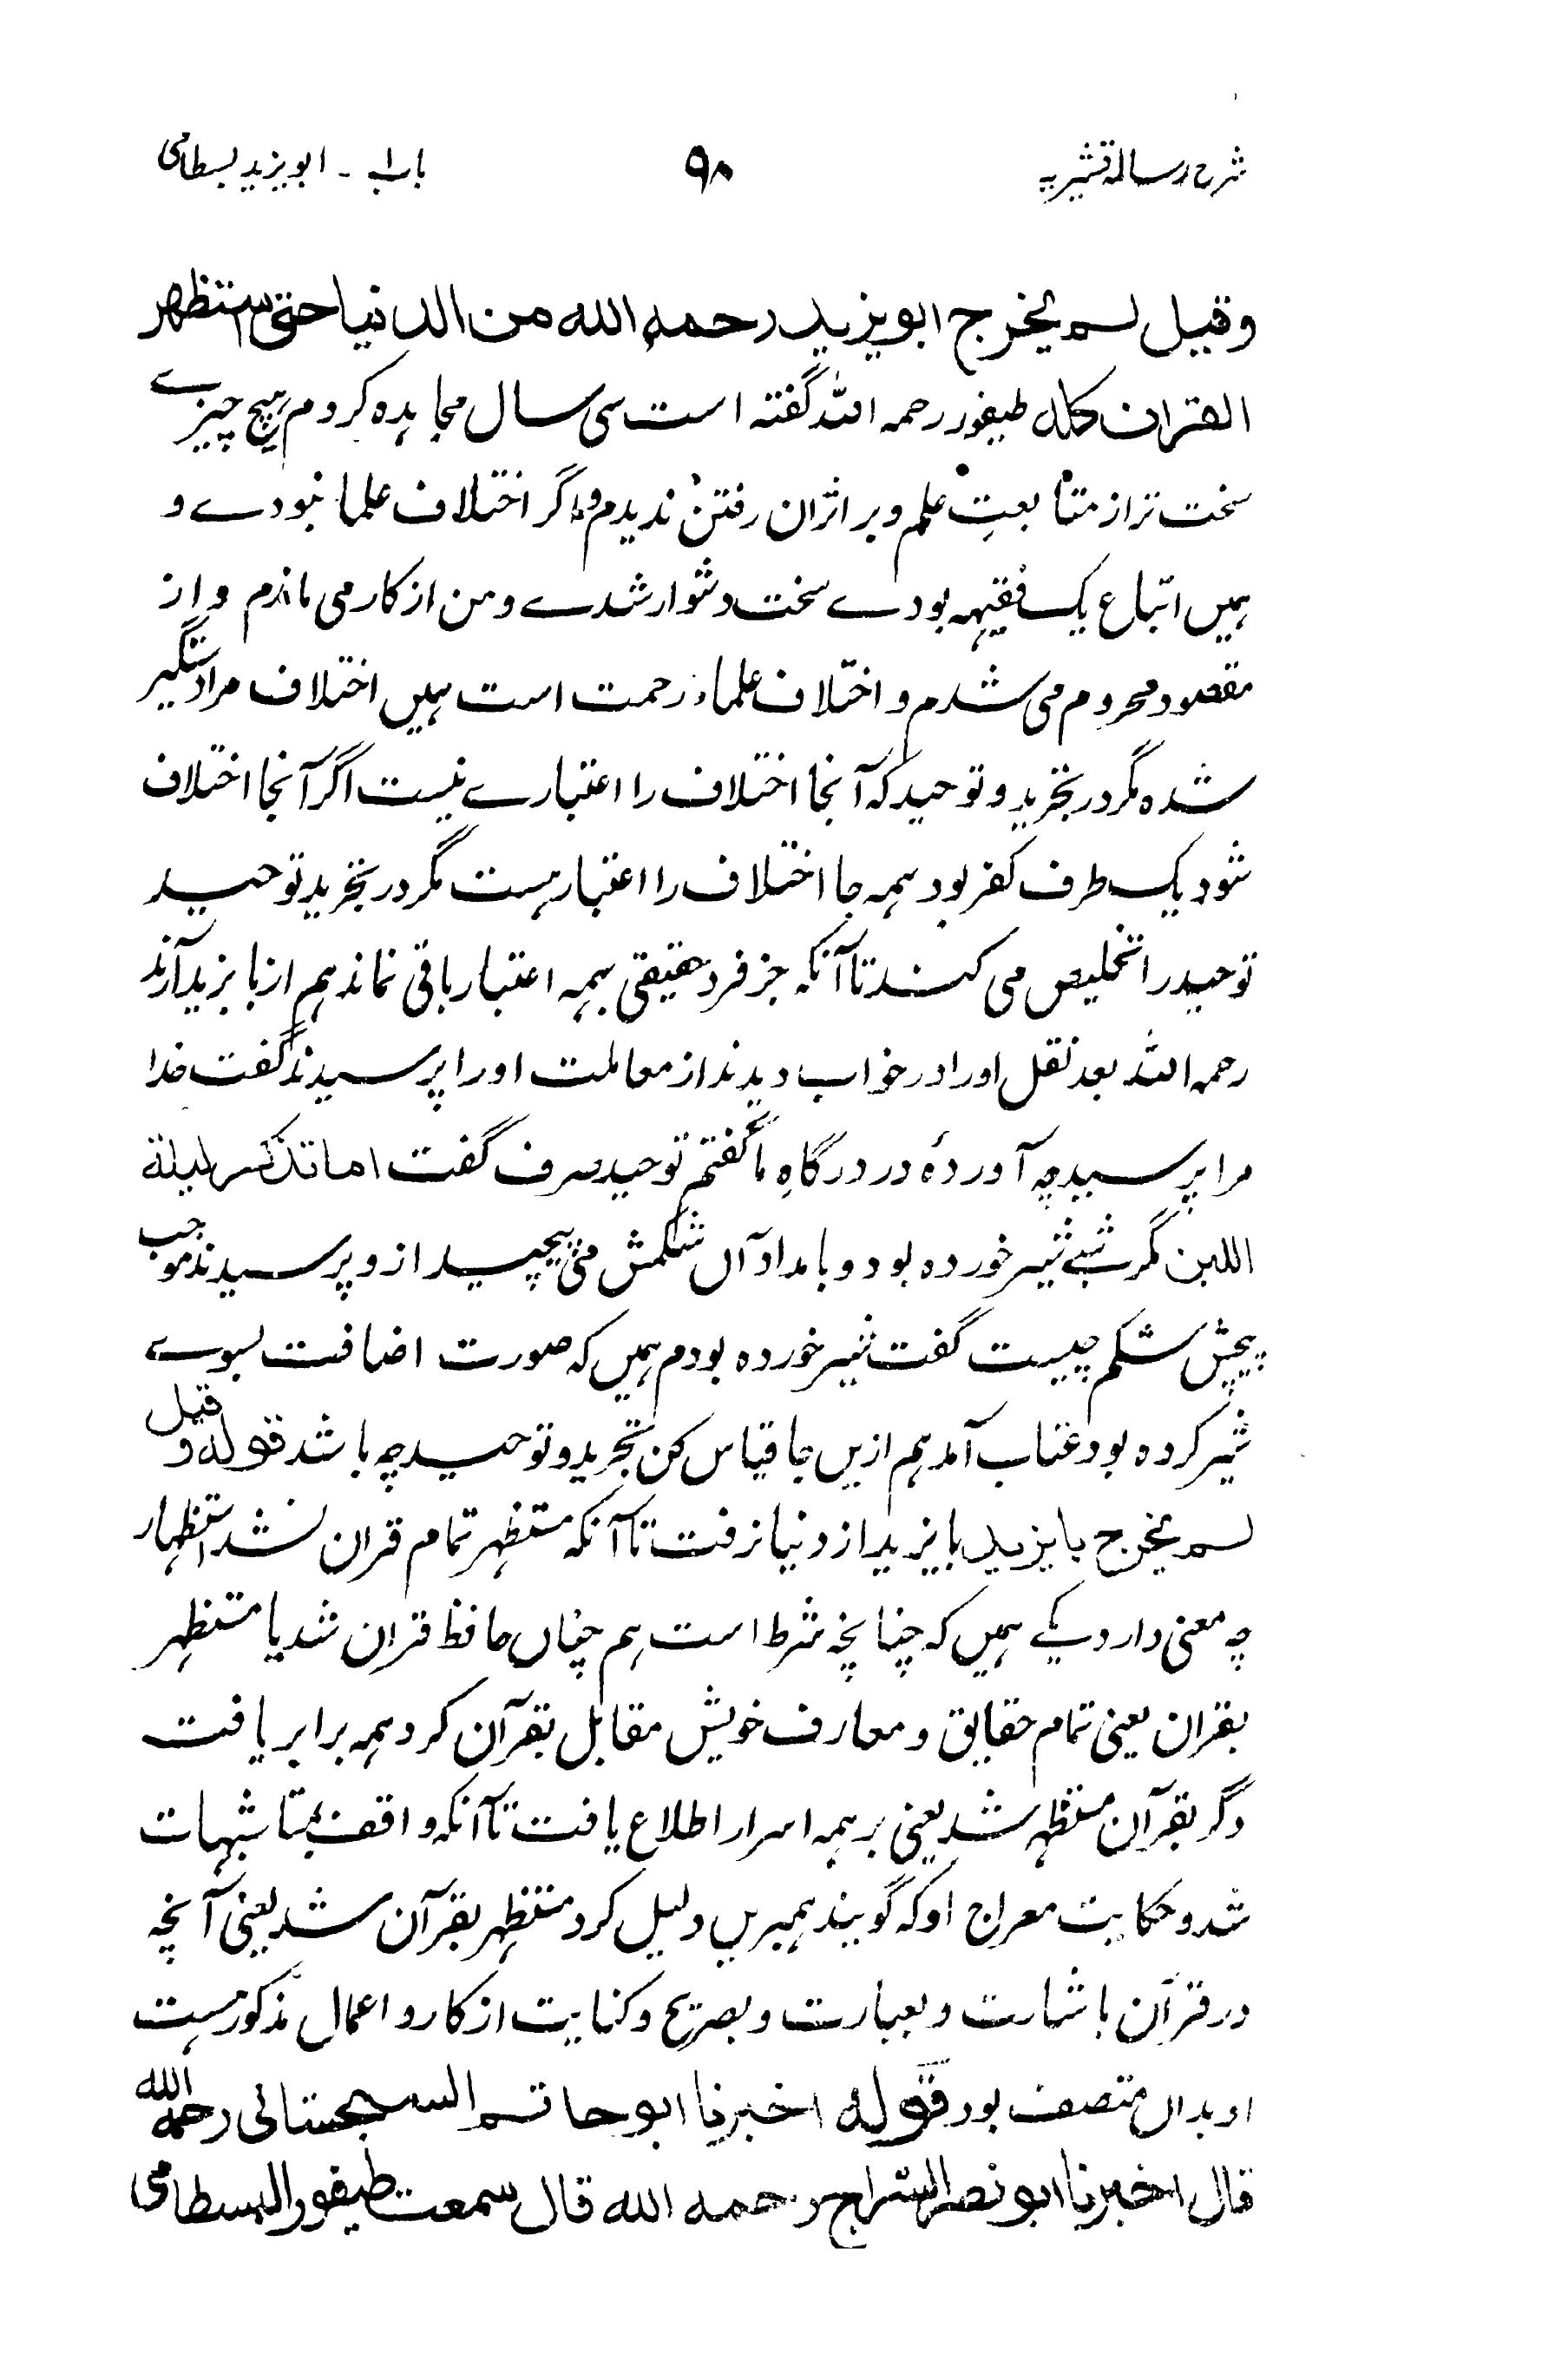 شرح رسالہ قشیریہ ۹۸ باب۱ ـ ابو یزید بسطامی
وقیل لم یخرج ابویزید رحمه الله من الدنیا حتی استظهر
القران کله طیفور رحمہ اللہ گفتہ است سی سال مجاہدہ کردم ہیچ چیزے
سخت تر از متابعتِ علم و بر اثر آن رفتن ندیدم و اگر اختلاف علما نبودے و
ہمیں اتباع یک فقیہہ بودے سخت دشوار شدے و من از کار می ماندم و از
مقصود محروم می شدم و اختلاف علماء رحمت است ہمیں اختلاف مرا دستگیر
شدہ مگر در تجرید و توحید کہ آنجا اختلاف را اعتبارے نیست اگر آنجا اختلاف
شود یک طرف کفر بود ہمہ جا اختلاف را اعتبار ہست مگر در تجرید توحید
توحید را تخلیص می کنند تا آنکہ جز فرد حقیقی ہمہ اعتبار باقی نماند ہم از بایزید آرند
رحمہ اللہ بعد نقل اورا در خواب دیدند از معاملت اورا پرسیدند گفت خدا
مرا پرسید چہ آوردۂ در درگاہِ ما گفتم توحید صرف گفت اما تذکر لیلة
اللبن مگر شبے شیر خوردہ بود و بامداد آں شکمش می پیچید ازو پرسیدند موجب
پیچش شکم چیست گفت شیر خوردہ بودم ہمیں کہ صورت اضافت بسوے
شیر کردہ بود عتاب آمد ہم ازیں جا قیاس کن تجرید و توحید چہ باشد قوله و قیل
لم یخرج بایزید بایزید از دنیا نرفت تا آنکہ مستظہر تمام قران نشد استظہار
چہ معنی دارد یکے ہمیں کہ چنانچہ شرط است ہم چناں حافظ قران شد یا مستظہر
بقران یعنی تمام حقایق و معارف خویش مقابل بقرآن کرد ہمہ برابر یافت
دگر بقرآن مستظہر شد یعنی بر ہمہ اسرار اطلاع یافت تا آنکہ واقف بمتاشبہات
شد و حکایت معراج او کہ گویند ہمبریں دلیل کرد مستظہر بقرآن شد یعنی آنچہ
در قرآن باشارت و بعبارت و بصریح و کنایت از کار و اعمال مذکور ہست
او بداں متصف بود قوله اخبرنا ابو حاتم السجستانی رحمه الله
قال اخبرنا ابو نصر السراج رحمه الله قال سمعت طیفور البسطامی